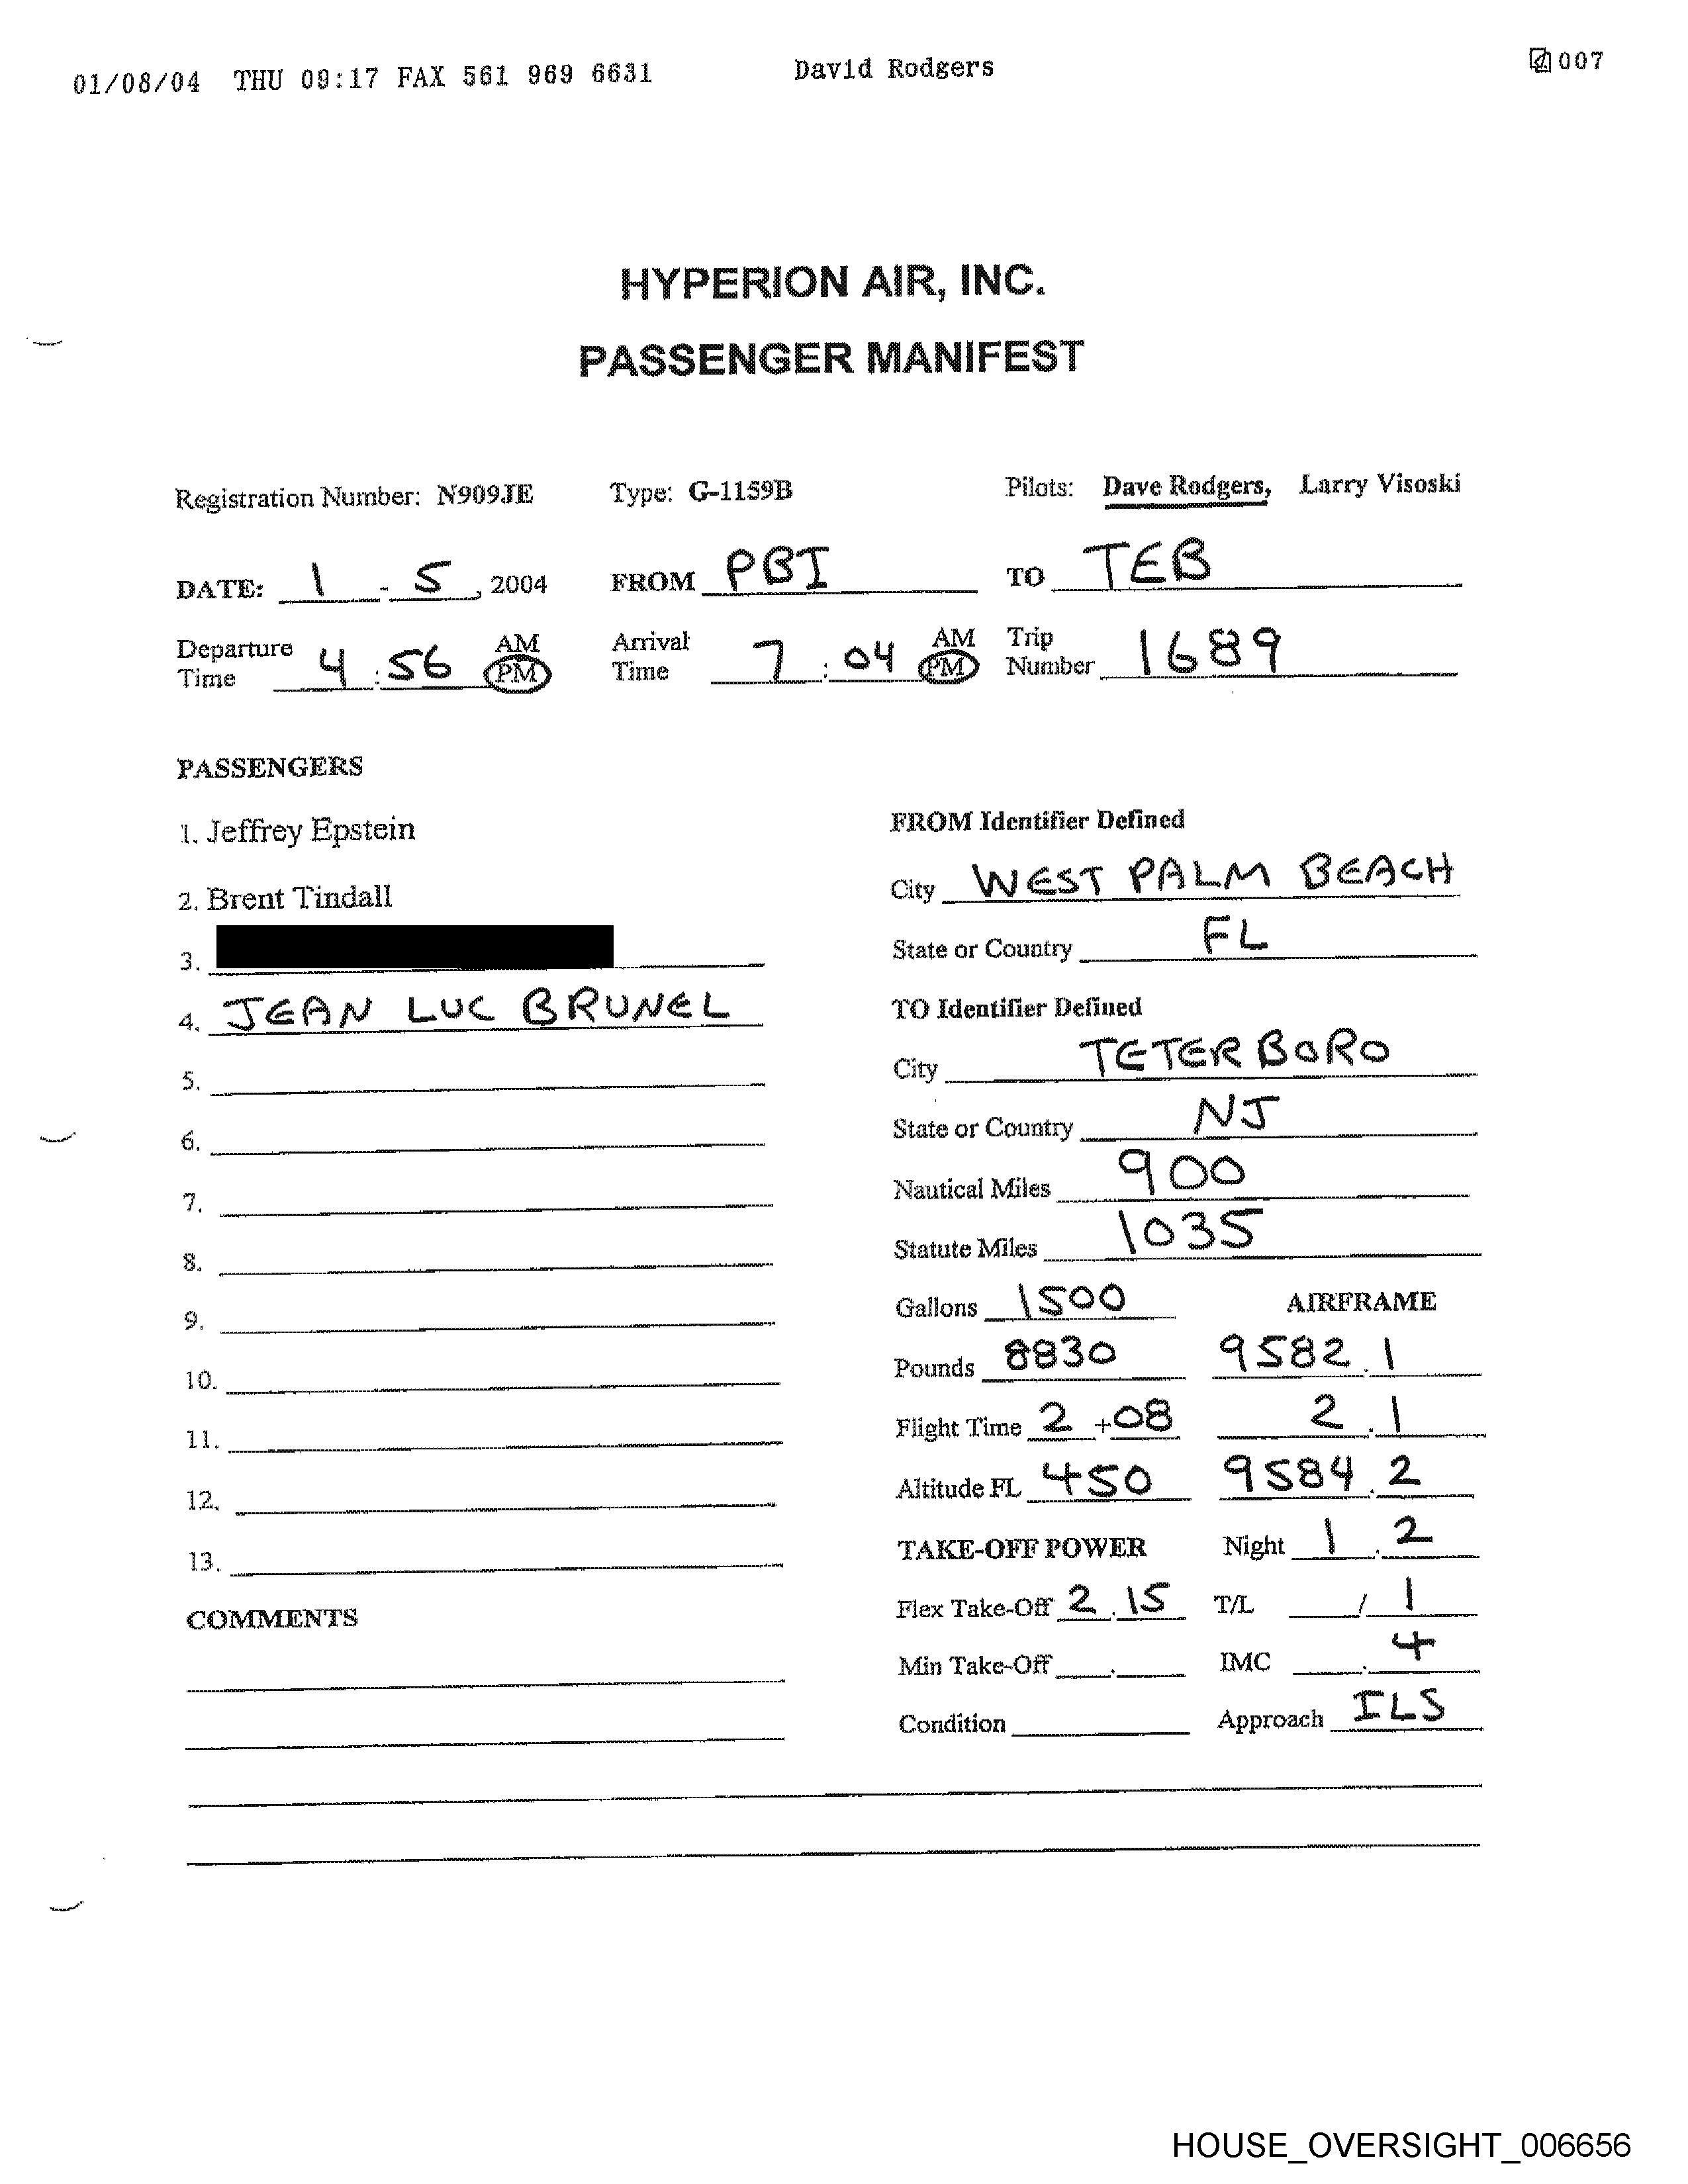 01/08/04 THU 09:17 FAX 561 969 6631 David Rodgers 007
HYPERION AIR, INC.
PASSENGER MANIFEST
Registration Number: N909JE Type: G-1159B Pilots: Dave Rodgers, Larry Visoski
DATE: 1 - 5, 2004 FROM PBI TO TEB
Departure Time 4:56 AM PM Arrival Time 7:04 AM PM Trip Number 1689
PASSENGERS
1. Jeffrey Epstein
2. Brent Tindall
3.
4. JEAN LUC BRUNEL
5.
6.
7.
8.
9.
10.
11.
12.
13.
COMMENTS
FROM Identifier Defined
City WEST PALM BEACH
State or Country FL
TO Identifier Defined
City TETERBORO
State or Country NJ
Nautical Miles 900
Statute Miles 1035
Gallons 1500 AIRFRAME
Pounds 8830 9582.1
Flight Time 2+08 2.1
Altitude FL 450 9584.2
TAKE-OFF POWER Night 1.2
Flex Take-Off 2.15 T/L /1
Min Take-Off . IMC .4
Condition Approach ILS
HOUSE_OVERSIGHT_006656